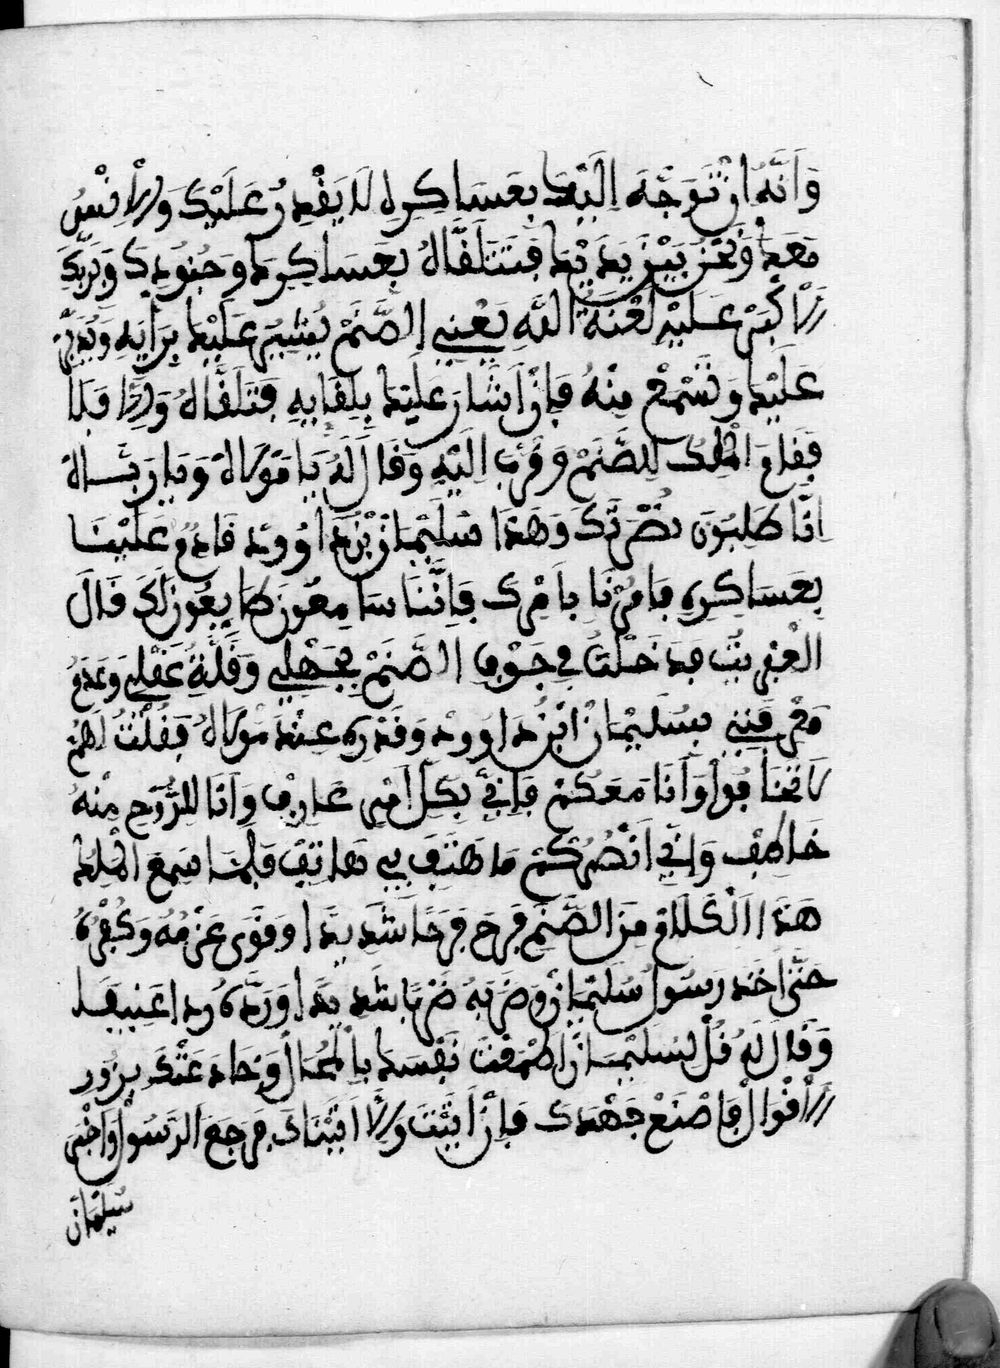 وَأَنَّهُ إنْ تَوَجَّهَ إلَيْكَ بِعَسَاكِرِهِ لَا يَقْدِرُ عَلَيْكَ وَالْإنْسُ
مَعَكَ وَنَحْنُ بَيْنَ يَدَيْكَ فَتَتَلَقَّاهُ بِعَسَاكِرِكَ وَجُنُودِكَ وَرَبُّكَ
الْأَكْبَرْ عَلَيْهِ لَعْنَةُ اللَّهِ يَعْنِي الصَّنَمْ يُشِيرْ عَلَيْكَ بِرَأْيِهِ وَيُدَبِّرْ
عَلَيْكَ وَتَسْمَعْ مِنْهُ فَإِنْ أَشَارَ عَلَيْكَ بِلِقَايِهِ فَتَلَقَّاهُ وَإِلَّا فَلَا
فَقَامَ الْمَلِكْ لِلصَّنَمْ وَقَرَّبَ إلَيْهِ وَقَالَ لَهُ يَا مَوْلَاهْ وَيَا رَبَّاهْ
إنَّا طَلِبُونَ نَصْرَتَكَ وَهَذَا سُلَيْمَانْ بْنُ دَاوُودِ قَادِمٌ عَلَيْنَا
بِعَسَاكِرِهِ فَامُرْنَا بِأَمْرِكَ فَإِنَّنَا سَامِعُونَ طَايِعُونَ لَكَ قَالَ
الْعِفْرِيتُ فَدَخَلْتُ فِي جَوْفِ الصَّنَمْ بِجَهْلِي وَقِلَّةِ عَقْلِي وَعَدَمِ
مَعْرِفَتِي بِسُلَيْمَانْ ابْنُ دَاوُودِ وَقَدْرِهِ عِنْدَ مَوْلَاهُ فَقُلْتُ لَهُمْ
لَا تَخَافُوا وَأَنَا مَعَكُمْ فَإِنِّي بِكُلِّ أَمْرٍ عَارِفٌ وَأَنَا لِلرُّوحِ مِنْهُ
خَاطِفْ وَإِنِّي أَنْصُرُكُمْ مَا هَتَفَ بِي هَاتِفْ فَلَمَّا سَمِعَ الْمَلِكْ
هَذَا الْكَلَامَ مِنَ الصَّنَمِ فَرِحَ فَرَحًا شَدِيدًا وَقَوَّى عَزْمُهُ وَكُفْرُهُ
حَتَّى أَخَذَ رَسُولَ سُلَيْمَانْ وَضَرَبَهُ ضَرْبًا شَدِيدًا وَرَدَّهُ رَدًّا عَنِيفًا
وَقَالَ لَهُ قُلْ لِسُلَيْمَانْ أَطْمَعْتَ نَفْسَكَ بِالْمُحَالْ وَجَادَ عَنْكَ بِزُورِ
الْأَقْوَالْ فَاصْنَعْ جَهْدَكَ فَإِنْ أَتَيْتَ وَإِلَّا أَتَيْنَاكَ فَرَجَعَ الرَّسُولْ وَأَخْبَرَ
سُلَيْمَانَ